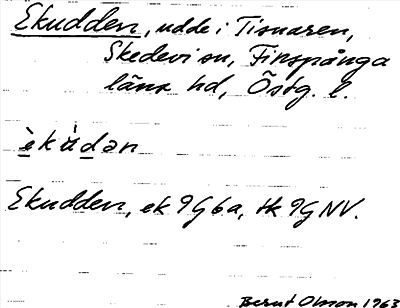 Ekudden, udde i Tisnaren,
Skedevi sn, Finspånga
läns hd, Östg. l.
èkùdən
Ekudden, ek 9G6a, tk 9G NV.
Bernt Olsson 1963